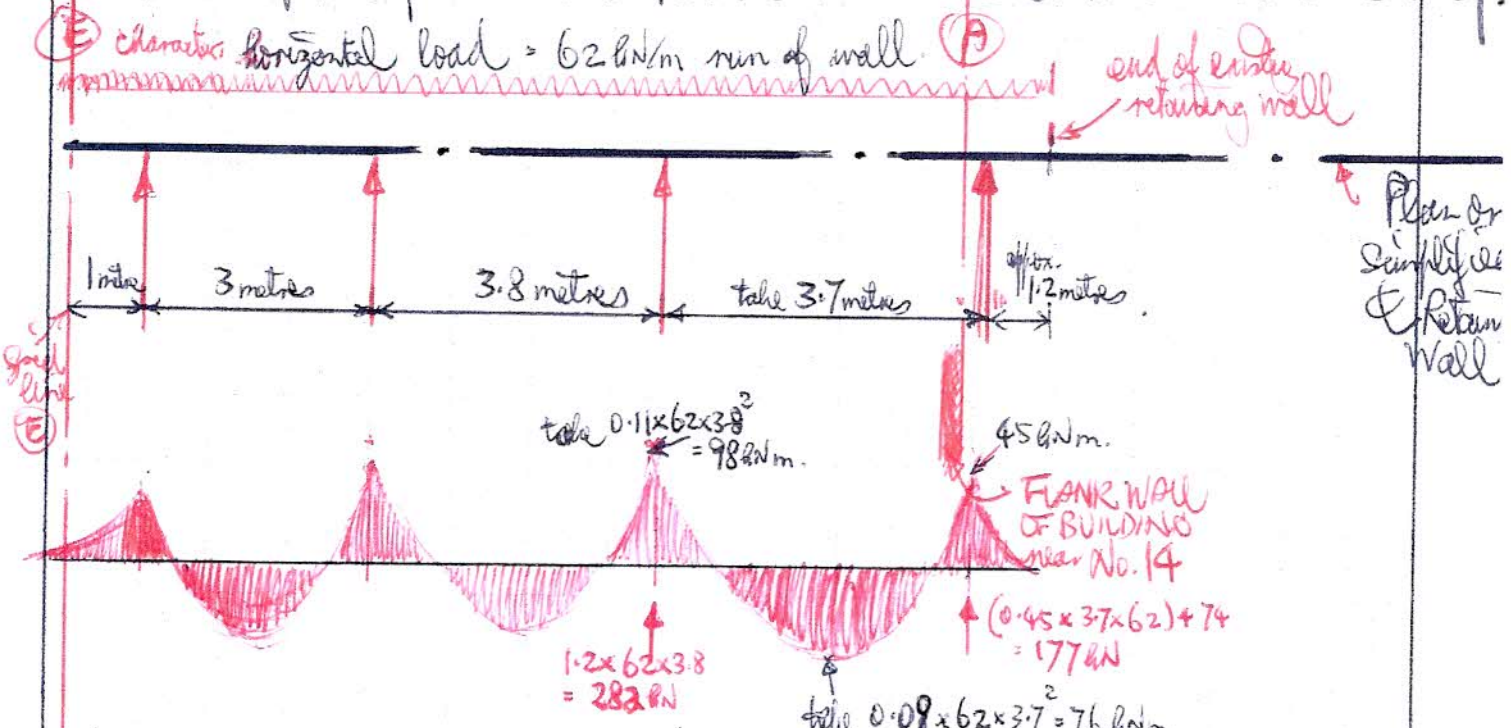 E characters horizontal load = 62 kN/m run of wall. A
end of existing
retaining wall
Plan on
Simplified
Retain
Wall
1 metre
3 metres
3.8 metres
take 3.7 metres
approx.
1.2 metres
Grid
line
E
take 0.11x62x3.8²
= 98 kNm.
45 kNm.
FLANK WALL
OF BUILDING
near No. 14
1.2x62x3.8
= 282 kN
(0.45 x 3.7 x 62) + 74
= 177 kN
take 0.09 x 62 x 3.7² = 76 kNm